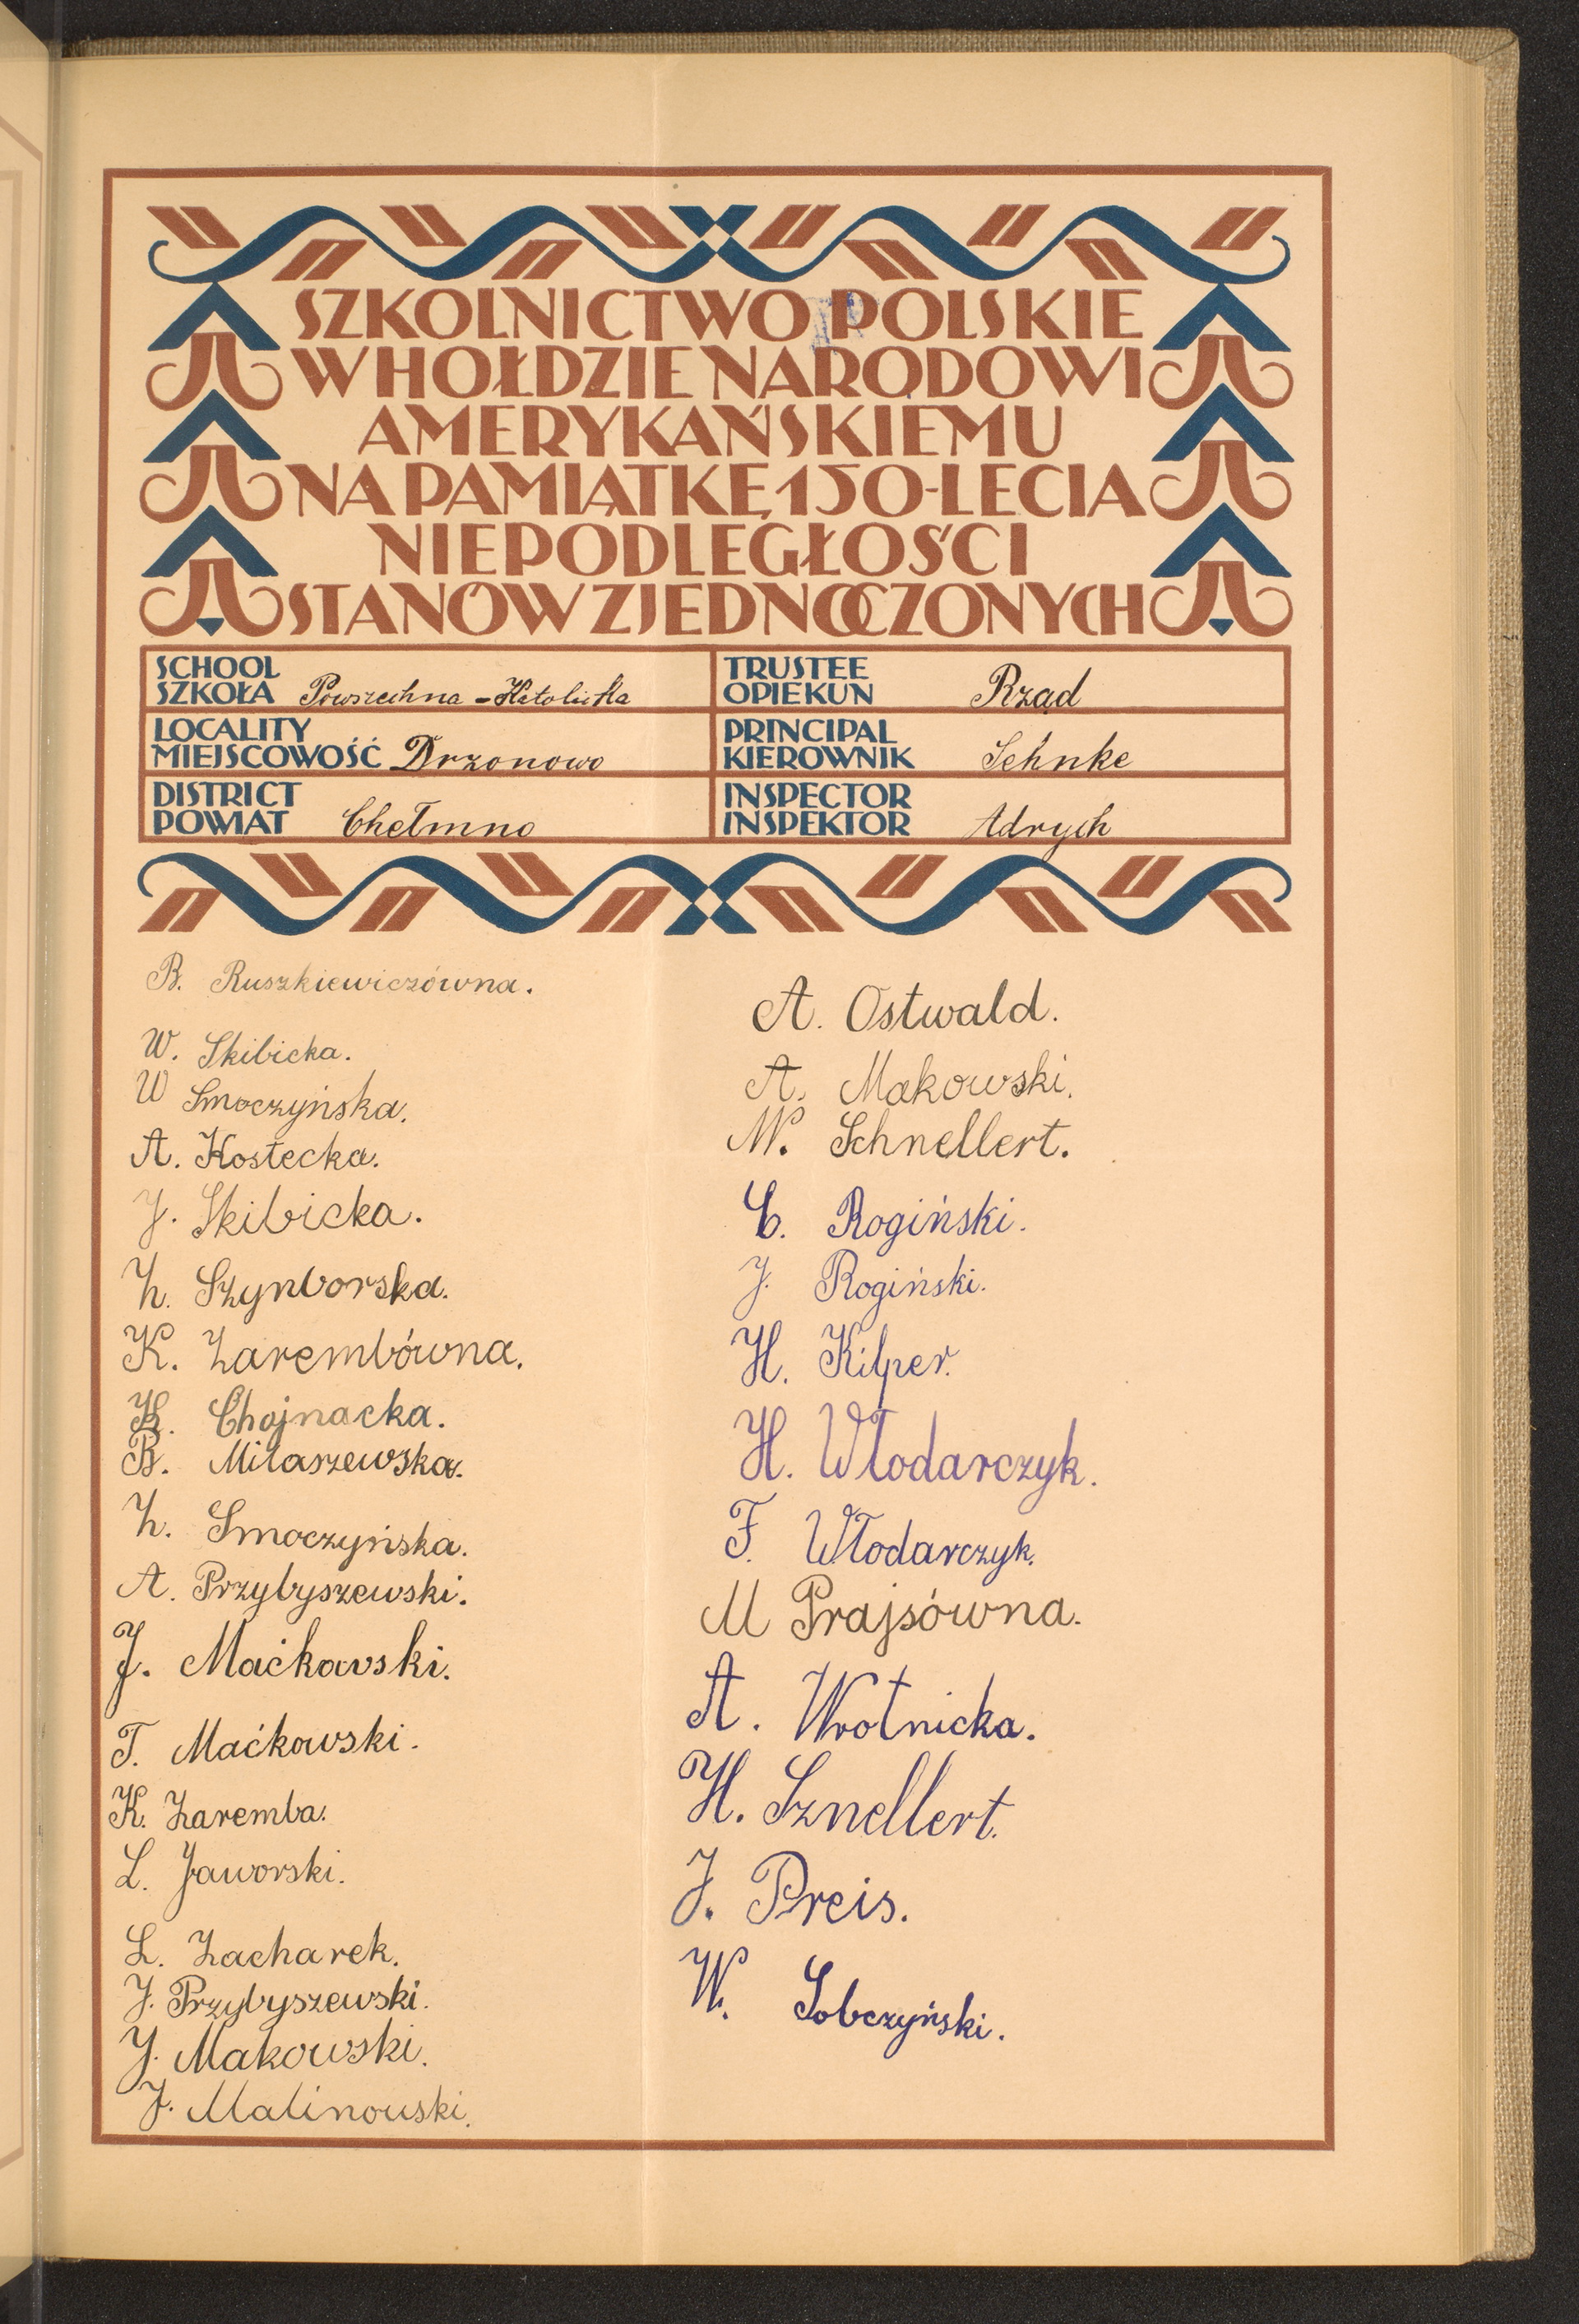 SZKOLNICTWO POLSKIE
W HOŁDZIE NARODOWI
AMERYKAŃSKIEMU
NA PAMIĄTKĘ 150-LECIA
NIEPODLEGŁOŚCI
STANÓW ZJEDNOCZONYCH
SCHOOL
SZKOŁA Powszechna - Katolicka
TRUSTEE
OPIEKUN Rząd
LOCALITY
MIEJSCOWOŚĆ Drzonowo
PRINCIPAL
KIEROWNIK Jehnke
DISTRICT
POWIAT Chełmno
INSPECTOR
INSPEKTOR Adrych
B. Ruszkiewiczówna.
W. Skibicka.
W Smoczyńska.
A. Kostecka.
J. Skibicka.
Z. Szynborska.
K. Zarembówna.
Chojnacka.
B. Milaszewska.
Z. Smoczyńska.
A. Przybyszewski.
J. Maćkowski.
T. Maćkowski.
K. Zaremba.
L. Jaworski.
L. Zacharek.
J. Przybyszewski.
J. Makowski.
J. Malinowski.
A. Ostwald.
A. Makowski.
W. Schnellert.
C. Rogiński.
J. Rogiński.
H. Kilper.
H. Włodarczyk.
F. Włodarczyk.
M Prajsówna.
A. Wrotnicka.
H. Sznellert.
J. Preis.
W. Sobczyński.